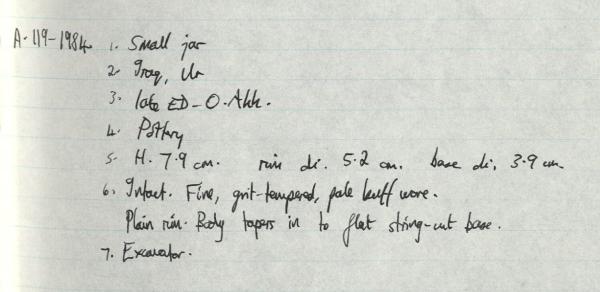 A.119-1984. 1. Small jar
2. Iraq, Ur
3. late ED-O.Akk.
4. Pottery
5. H. 7.9 cm. rim di. 5.2 cm. base di. 3.9 cm
6. Intact. Fine, grit-tempered, pale buff ware.
Plain rim. Body tapers in to flat string-cut base.
7. Excavator.